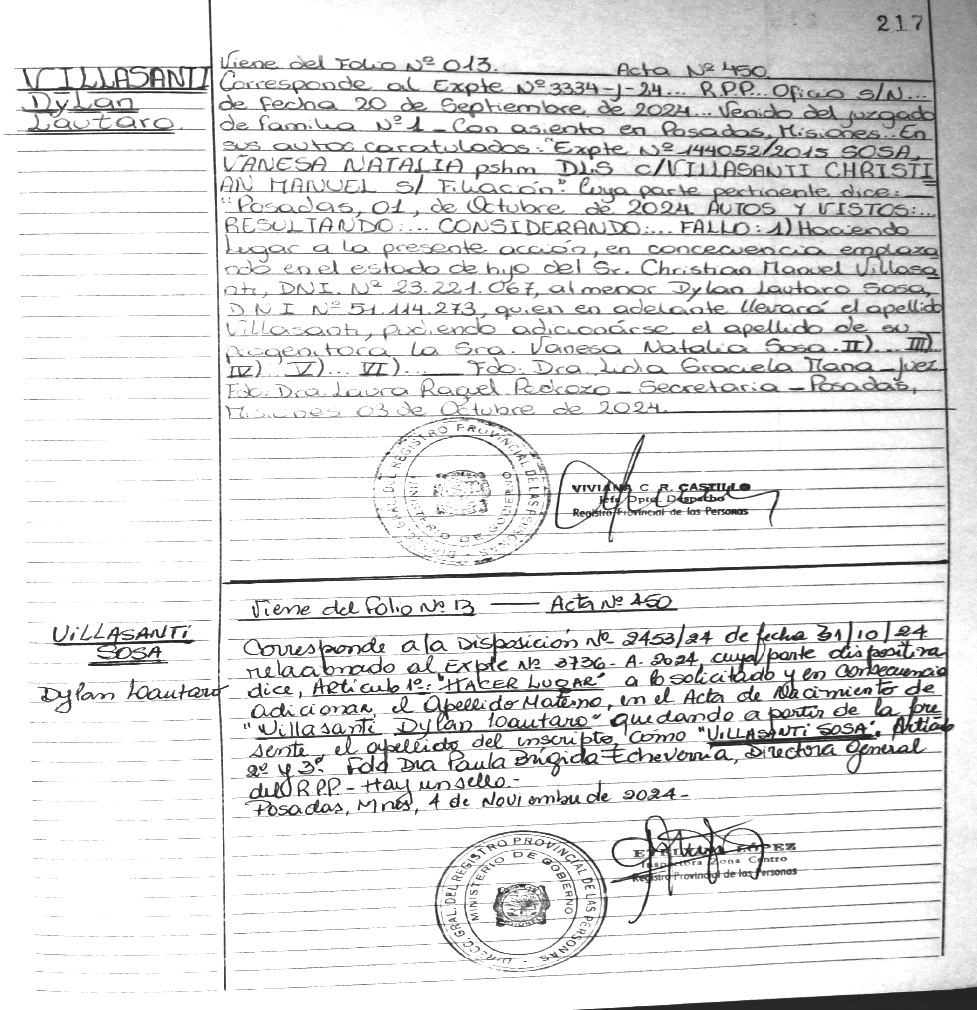 217
VILLASANTI
Dylan
Lautaro.
Viene del Folio Nº 013. Acta Nº 450
Corresponde al Expte Nº 3334-J-24... R.P.P. Oficio s/N...
de fecha 20 de Septiembre de 2024... Venido del juzgado
de familia Nº 1 - Con asiento en Posadas, Misiones. En
sus autos caratulados: "Expte Nº 144052/2015 SOSA,
VANESA NATALIA pshm D.L.S c/VILLASANTI CHRISTI
AN MANUEL s/ Filiación" Cuya parte pertinente dice:
"Posadas, 01, de Octubre de 2024. AUTOS Y VISTOS:...
RESULTANDO:... CONSIDERANDO:... FALLO: 1) Haciendo
lugar a la presente acción, en concecuencia emplaza
ndo en el estado de hijo del Sr. Christian Manuel Villasa
nti, DNI. Nº 23.221.067, al menor Dylan Lautaro Sosa,
D N I Nº 51.114.273, quien en adelante llevará el apellido
Villasanti, pudiendo adicionárse el apellido de su
progenitora la Sra. Vanesa Natalia Sosa. II)... III)
IV) V)... VI)... Fdo. Dra. Lidia Graciela Mana - Juez
Fdo. Dra. Laura Raquel Pedrozo - Secretaria - Posadas,
Misiones 03 de Octubre de 2024.
DIRECC. GRAL. DEL REGISTRO PROVINCIAL DE LAS PERSONAS
MINISTERIO DE GOBIERNO
VIVIANA C. R. CASTILLO
Jefe Dpto. Despacho
Registro Provincial de las Personas
Viene del Folio Nº 13 —— Acta Nº 450
VILLASANTI
SOSA
Dylan Lautaro
Corresponde a la Disposición Nº 2453/24 de fecha 31/10/24
relacionado al Expte Nº 3736-A-2024, cuya parte dispositiva
dice, Artículo 1º: "HACER LUGAR" a lo solicitado y en Consecuencia
adicionar, el Apellido Materno, en el Acta de Nacimiento de
"Villasanti Dylan Lautaro" quedando a partir de la pre
sente, el apellido del inscripto como "VILLASANTI SOSA". Artículo
2º y 3º. Fdo Dra Paula Brigida Echeverria, Directora General
del R.P.P - Hay un sello.-
Posadas, Mnes, 4 de Noviembre de 2024-
DIRECC. GRAL. DEL REGISTRO PROVINCIAL DE LAS PERSONAS
MINISTERIO DE GOBIERNO
MISIONES
LOPEZ
Inspectora Zona Centro
Registro Provincial de las Personas